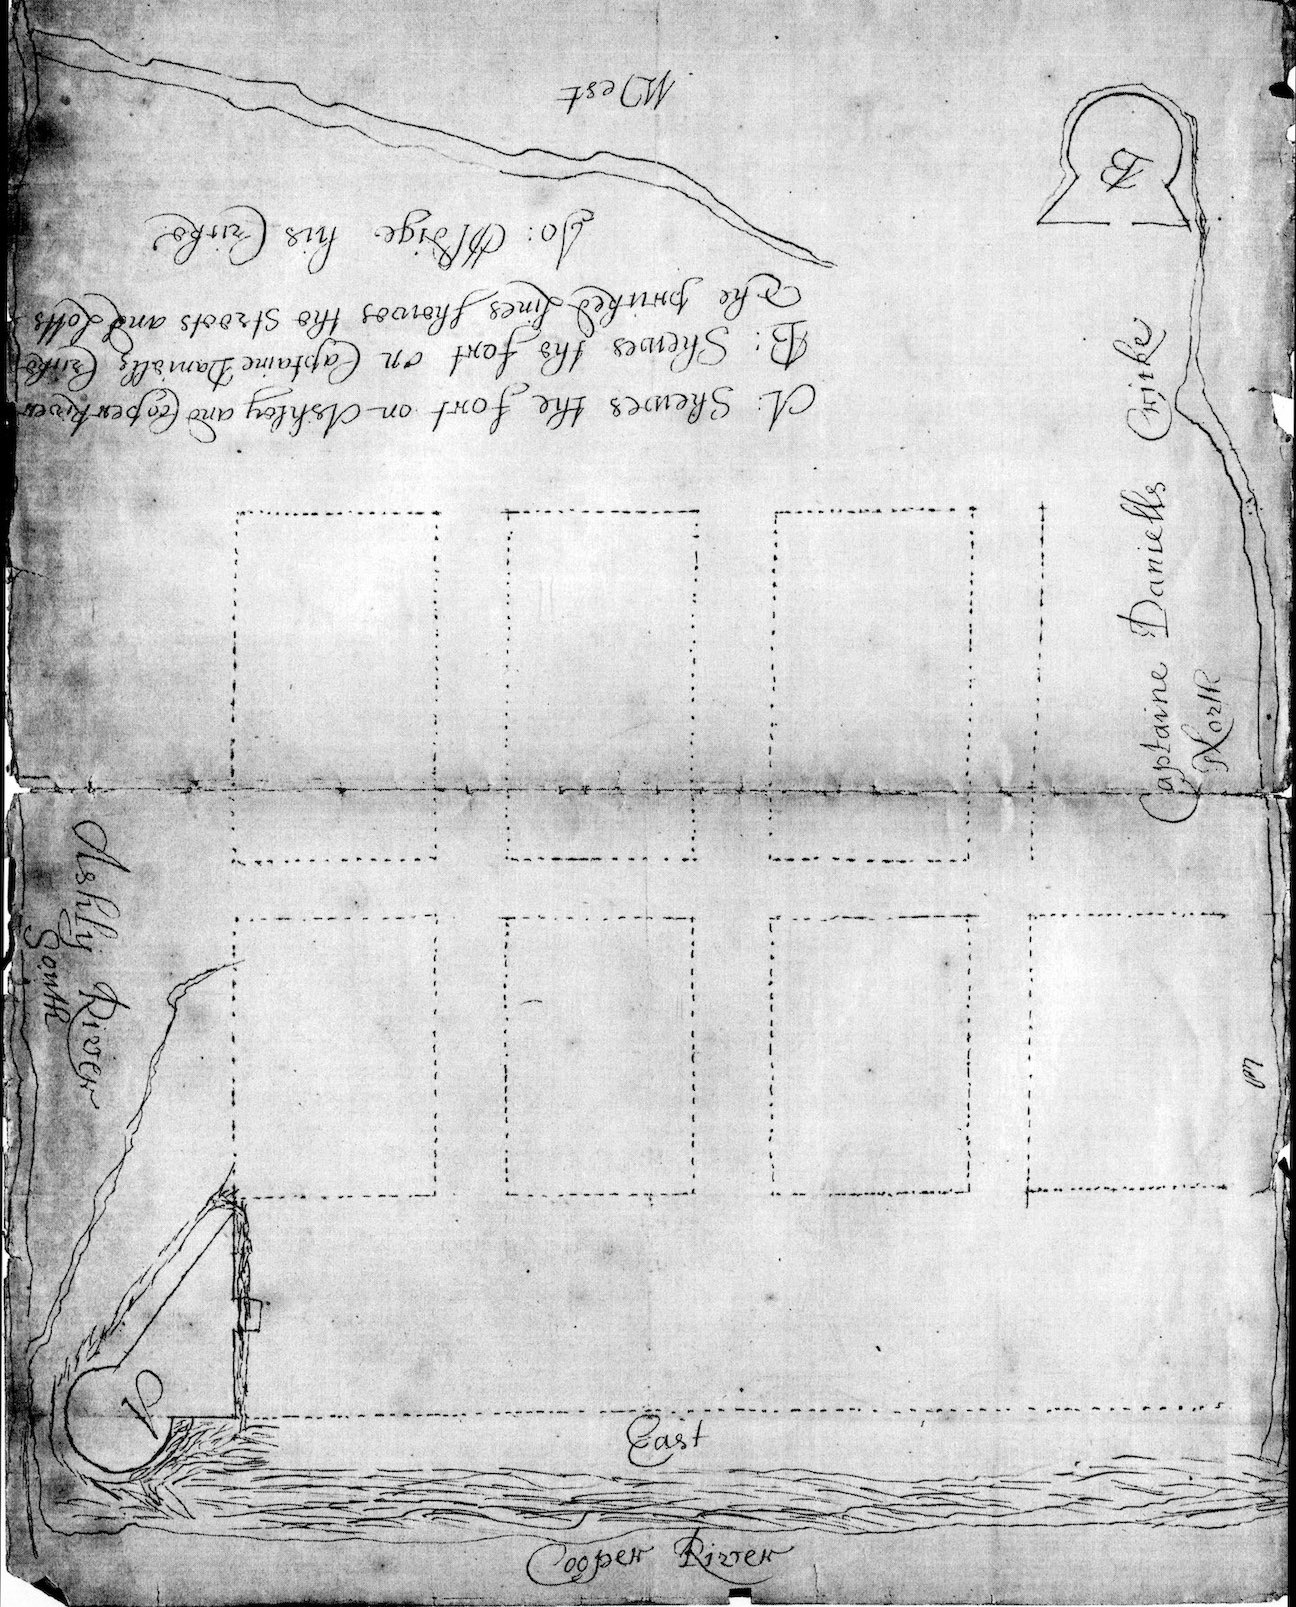 West
Jo: his Crike
The pricked Lines shewes the Streets and Lotts
B: Shewes the fort on Captaine Daniells Crike
A: Shewes the fort on Ashley and Cooper River
B
Captaine Daniells Crike
North
Ashly River
South
A
East
Cooper River